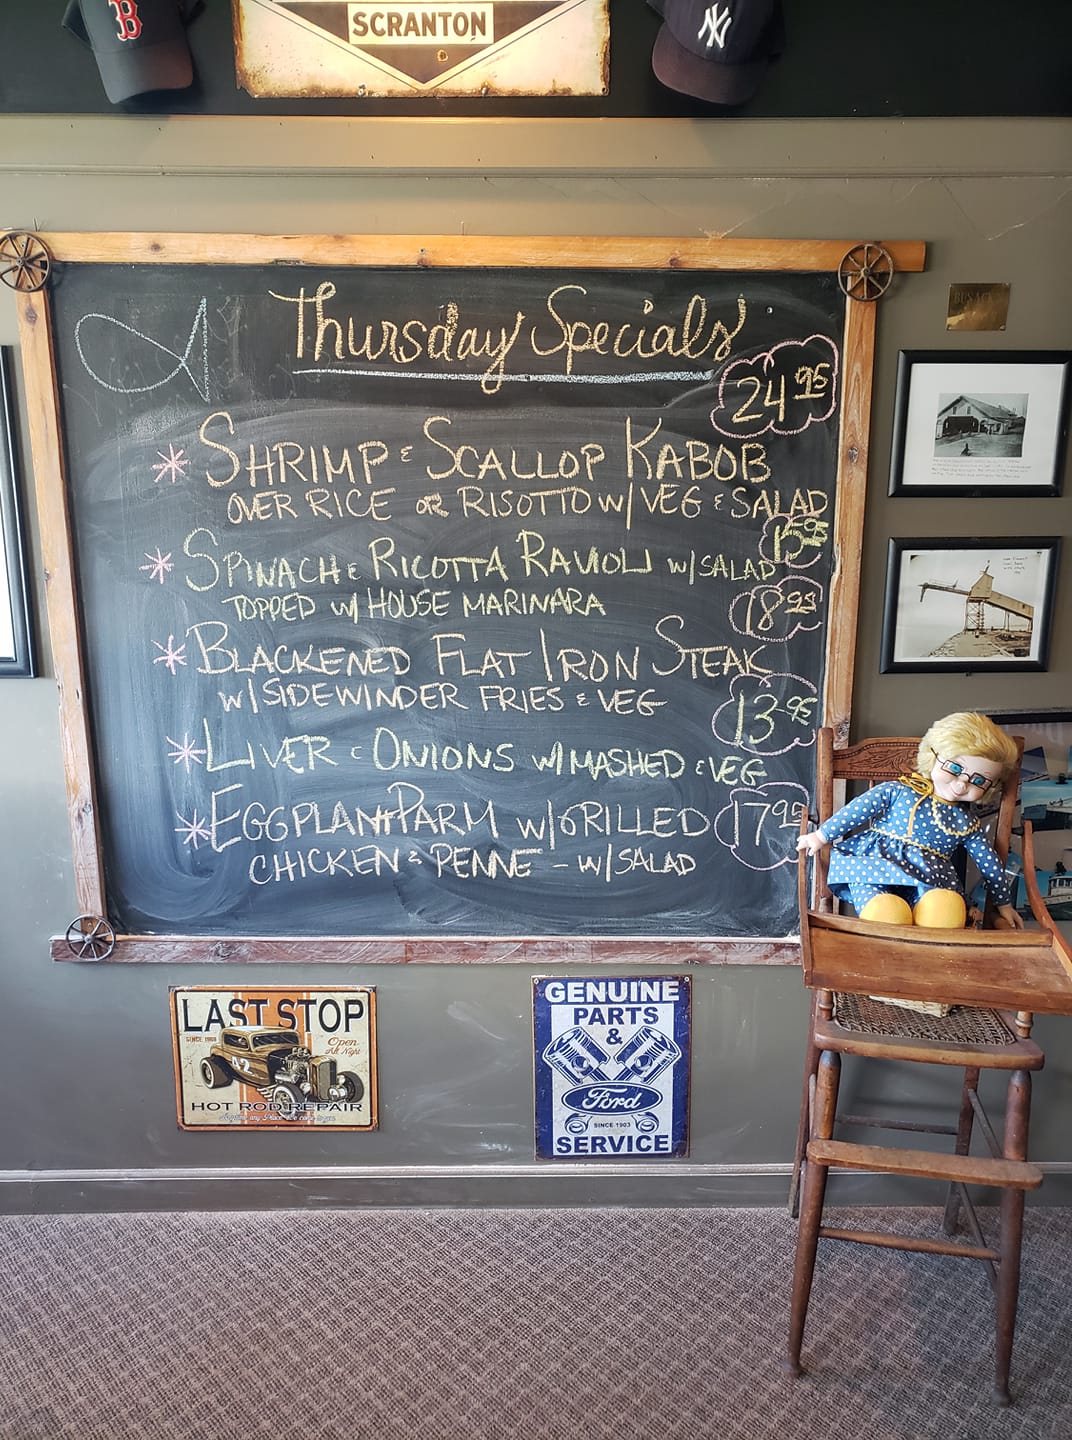 B
SCRANTON
NY
Thursday Specials
24.95
* SHRIMP & SCALLOP KABOB
OVER RICE OR RISOTTO W/ VEG & SALAD
15.95
* SPINACH & RICOTTA RAVIOLI W/SALAD
TOPPED W/ HOUSE MARINARA
18.95
* BLACKENED FLAT IRON STEAK
W/SIDEWINDER FRIES & VEG
13.95
* LIVER & ONIONS W/MASHED & VEG
* EGGPLANT PARM W/GRILLED
17.95
CHICKEN & PENNE - W/SALAD
LAST STOP
SINCE 1908
Open
All Night
HOT ROD REPAIR
GENUINE
PARTS
&
Ford
SINCE 1903
SERVICE